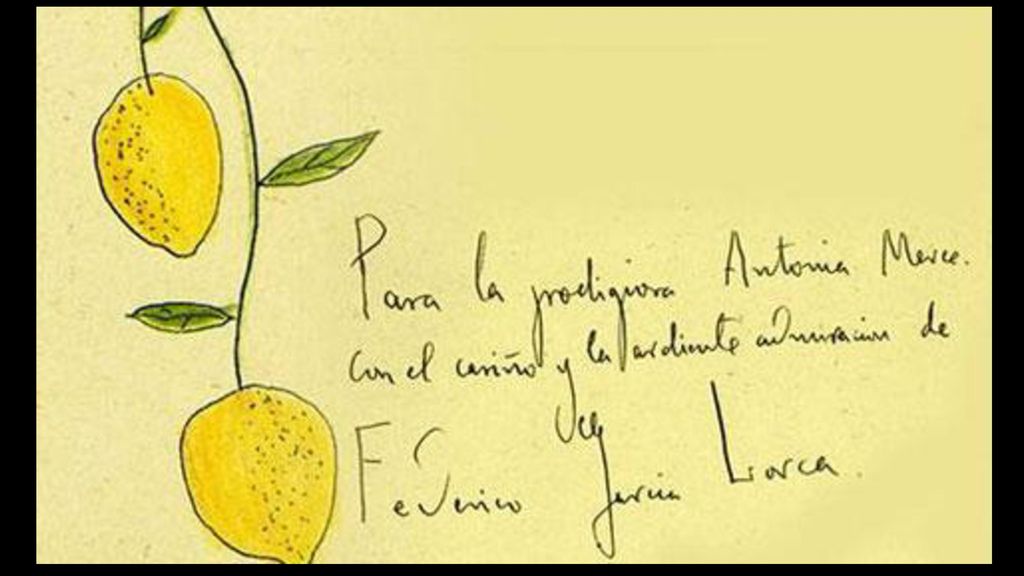 Para la prodigiosa Antonia Merce.
con el cariño y la ardiente admiracion de
Federico Garcia Lorca.